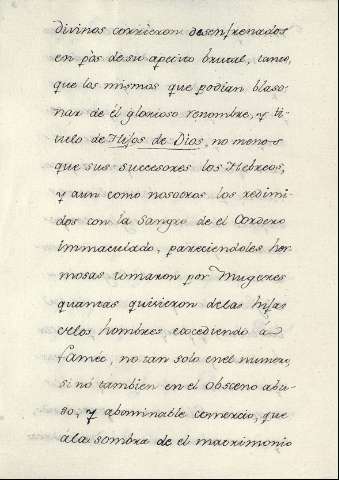 divinos corrieron desenfrenados
en pòs de su apetito brutal, tanto,
que los mismos que podian blaso-
nar de él glorioso renombre, y ti-
tulo de Hijos de Dios, no menos
que sus succesores los Hebreos,
y aun como nosotros los redimi-
dos con la Sangre de el Cordero
Immaculado, pareciendoles her-
mosas tomaron por Mugeres
quantas quisieron delas hijas
de los hombres, excediendo á
Lamec, no tan solo enel numero,
si nó tambien en el obsceno abu-
so, y abominable comercio, que
á la sombra de el matrimonio